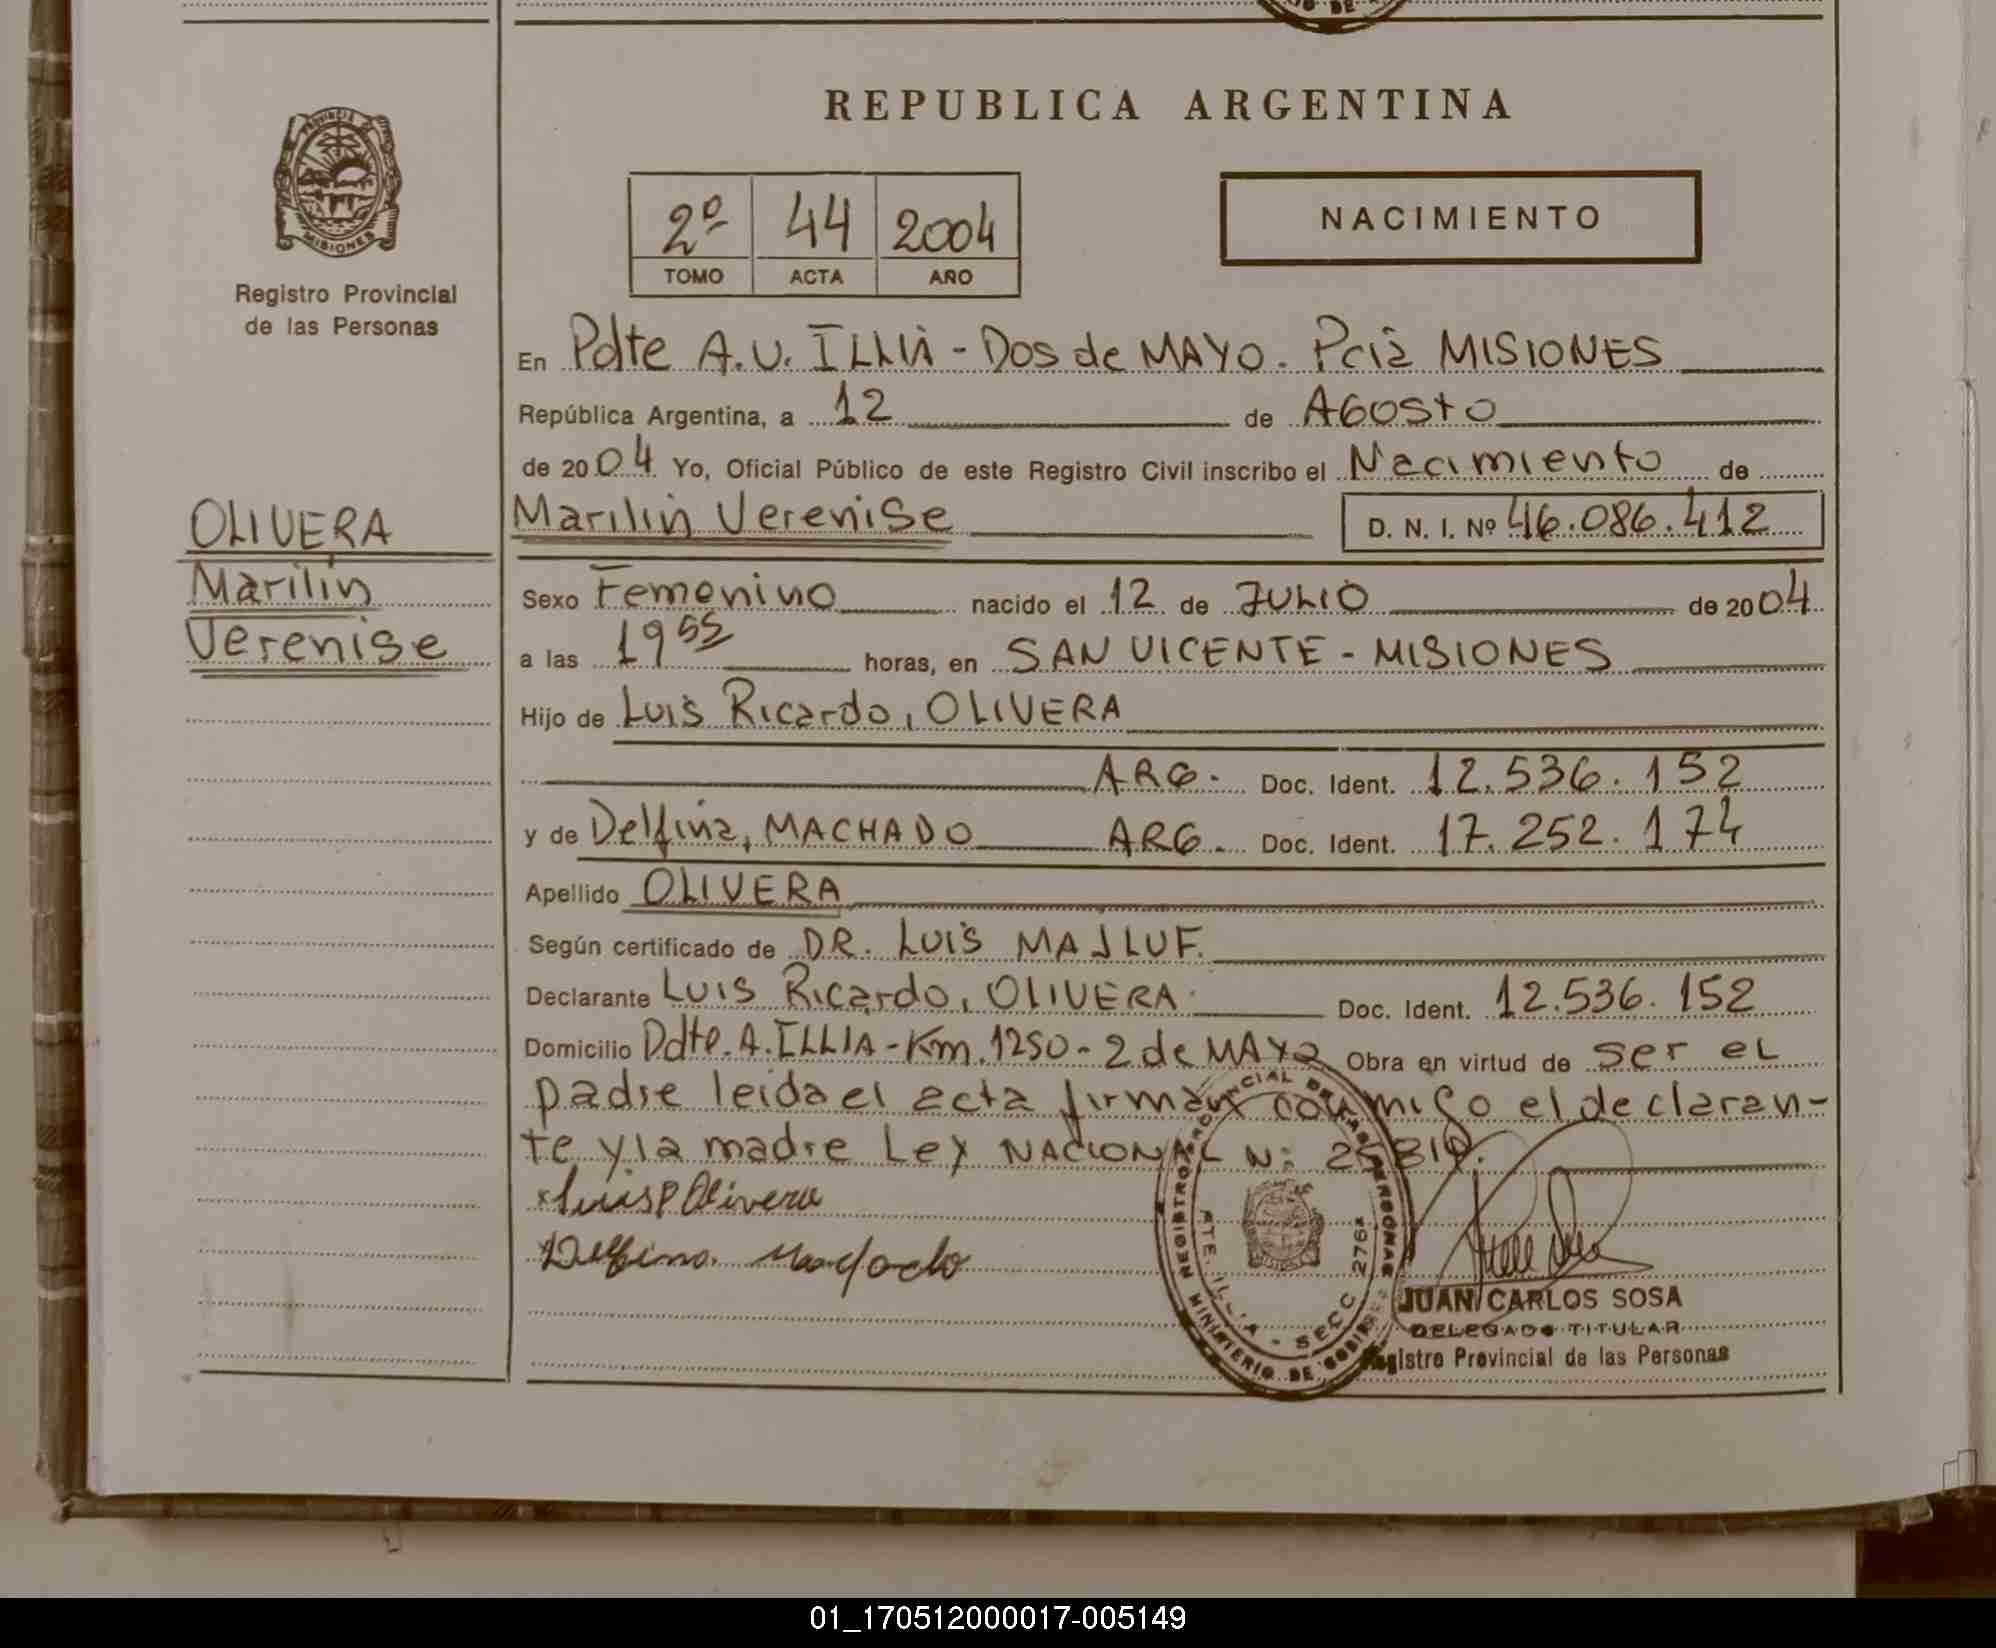 REPUBLICA ARGENTINA
PROVINCIA DE
MISIONES
Registro Provincial
de las Personas
2º 44 2004
TOMO ACTA AÑO
NACIMIENTO
En Pdte A.U. ILLIA - Dos de MAYO. Pcia MISIONES
República Argentina, a 12 de AGOSTO
de 2004 Yo, Oficial Público de este Registro Civil inscribo el Nacimiento de
OLIVERA
Marilin
Verenise
Marilin Verenise D. N. I. Nº 46.086.412
Sexo Femenino nacido el 12 de JULIO de 2004
a las 19 55 horas, en SAN VICENTE - MISIONES
Hijo de Luis Ricardo, OLIVERA
ARG. Doc. Ident. 12.536.152
y de Delfina, MACHADO ARG. Doc. Ident. 17.252.174
Apellido OLIVERA
Según certificado de DR. LUIS MAJLUF.
Declarante LUIS Ricardo, OLIVERA Doc. Ident. 12.536.152
Domicilio Pdte. A. ILLIA - Km. 1250 - 2 de MAYO Obra en virtud de ser el
padre leida el acta firman conmigo el declaran-
te y la madre Ley NACIONAL N:
Luis R Olivera
Delfina Machado
REGISTRO PROVINCIAL DE LAS PERSONAS
PTE. ILLIA - SECC 2768
MINISTERIO DE GOBIERNO
JUAN CARLOS SOSA
DELEGADO TITULAR
Registro Provincial de las Personas
01_170512000017-005149